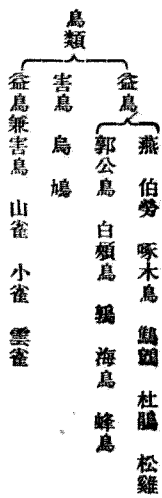 鳥類
益鳥
燕 伯勞 啄木鳥 鷦鷯 杜鵑 松雞
郭公鳥 白頰鳥 鶫 海鳥 蜂鳥
害鳥 烏 鳩
益鳥兼害鳥 山雀 小雀 雲雀